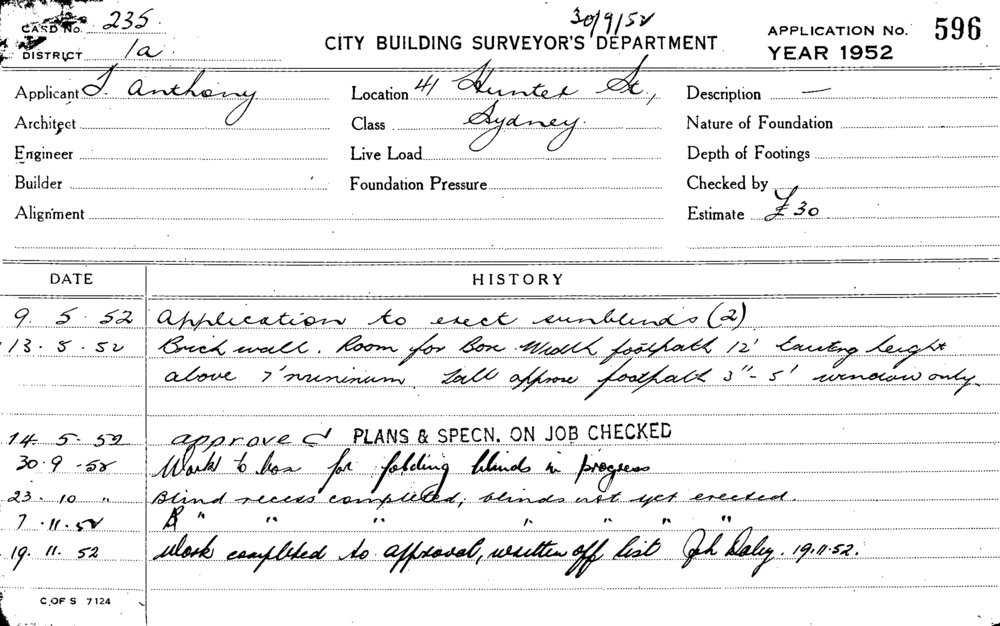 CARD No. 235
30/9/52
DISTRICT 1a
CITY BUILDING SURVEYOR'S DEPARTMENT
APPLICATION No. 596
YEAR 1952
Applicant J. Anthony Location 41 Hunter St., Description —
Architect Class Sydney. Nature of Foundation
Engineer Live Load Depth of Footings
Builder Foundation Pressure Checked by
Alignment Estimate £30
DATE HISTORY
9. 5. 52 Application to erect sunblinds (2)
13. 5. 52 Brick wall. Room for Box Width footpath 12' height
above 7' footpath 3" - 5' window only.
14. 5. 52 approved PLANS & SPECN. ON JOB CHECKED
30. 9. 52 Work to box for folding blinds in progress
23. 10 " Blind recess completed, blinds not yet erected
7. 11. 52 B " " " " " " "
19. 11. 52 Work completed to approval, written off list Daley. 19.11.52.
C. OF S 7124